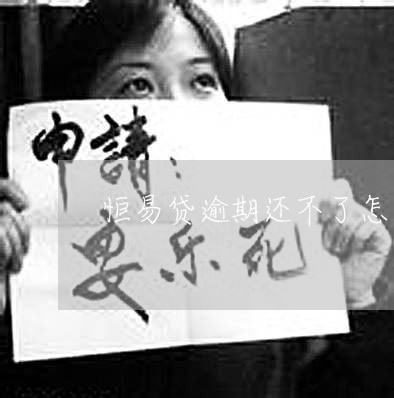 申請：
恒易贷逾期还不了怎
安乐死